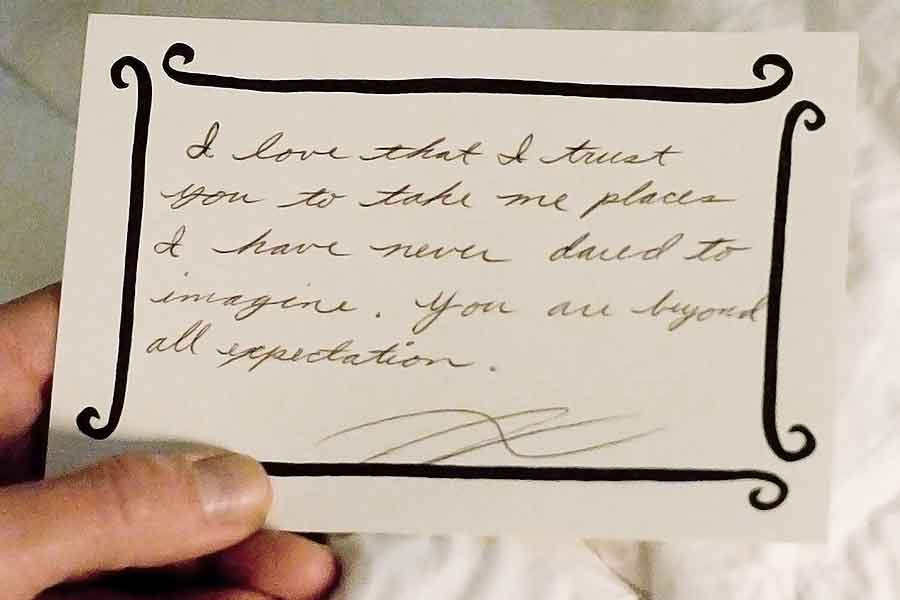 I love that I trust
you to take me places
I have never dared to
imagine. You are beyond
all expectation.